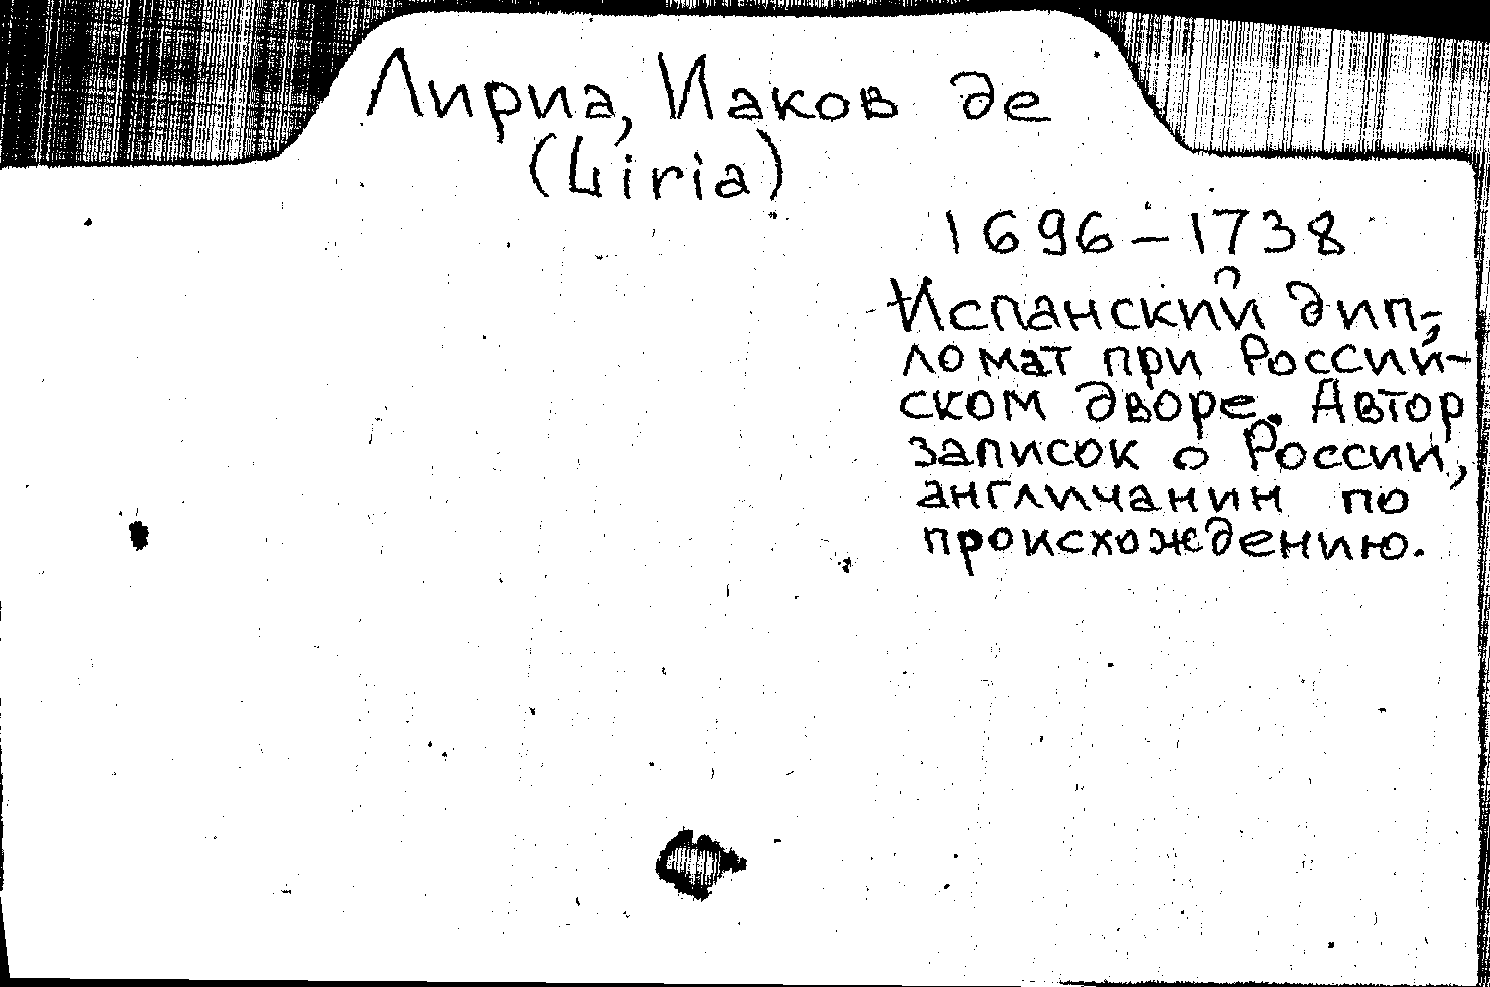 Лириа, Иаков де
(Liria)
1696–1738
Испанский дип-
ломат при Россий-
ском дворе. Автор
записок о России,
англичанин по
происхождению.